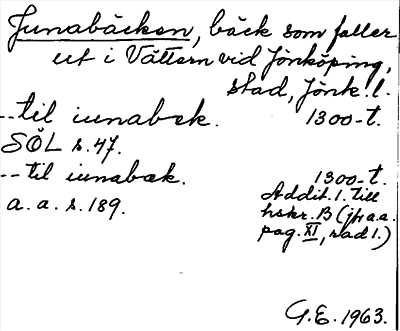 Junabäcken, bäck som faller
ut i Vättern vid Jönköping,
stad, Jönk. l.
--til iunabek. 1300-t.
SÖL s. 47.
--til iunabæk. 1300-t.
a. a. s. 189. Addit. 1. till
hskr. B (jfr a.a.
pag. XI, rad 1.)
G.E. 1963.